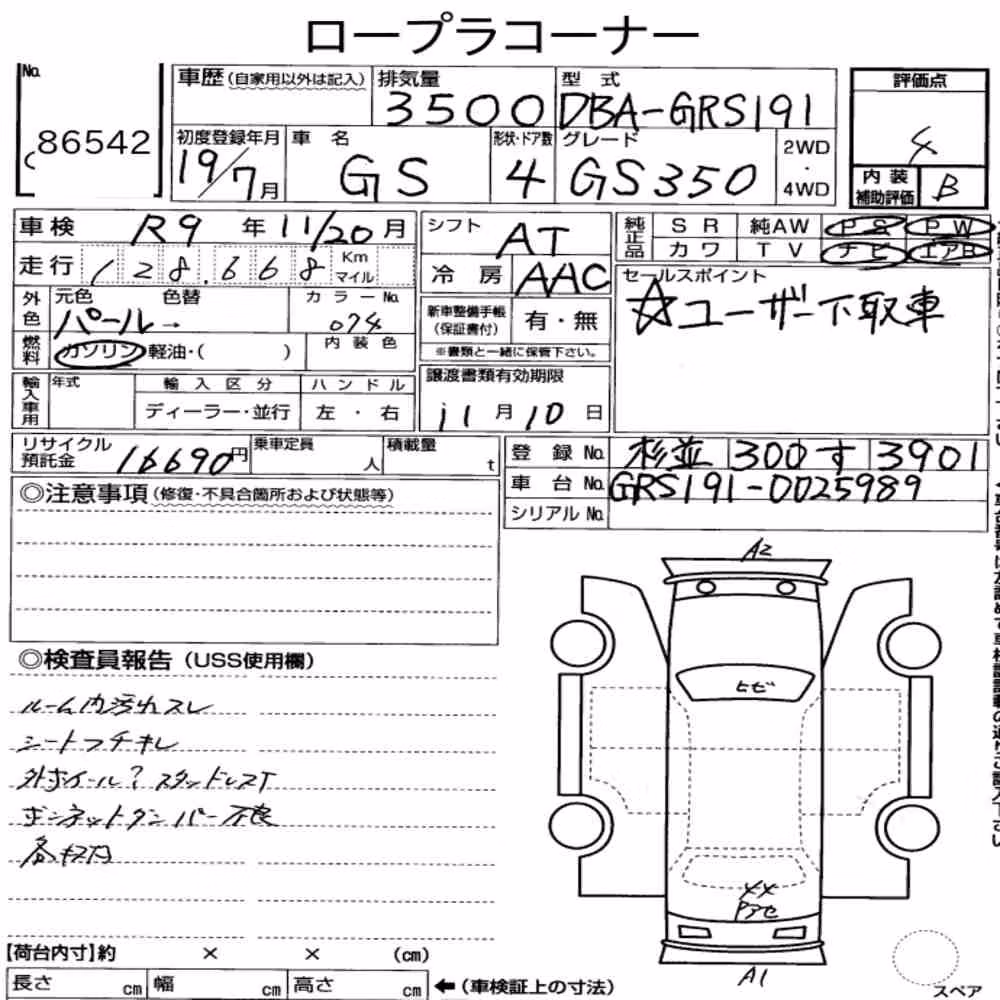 ロープラコーナー
No.
86542
車歴(自家用以外は記入)
排気量
3500
型 式
DBA-GRS191
評価点
4
初度登録年月
19/7月
車 名
GS
形状・ドア数
4
グレード
GS350
2WD
・
4WD
内 装
補助評価
B
車検
R9 年 11/20 月
シフト
AT
純正品
SR 純AW PS PW
カワ TV ナビ エアB
走行
128.668
Km
マイル
冷 房
AAC
セールスポイント
☆ユーザー下取車
外色
元色
パール→
色替
カラーNo.
074
新車整備手帳
(保証書付)
有・無
※書類と一緒に保管下さい。
燃料
ガソリン 軽油・( )
内 装 色
輸入車用
年式
輸 入 区 分
ハ ン ド ル
ディーラー・並行
左 ・ 右
譲渡書類有効期限
11月10日
リサイクル
預託金
16690円
乗車定員
人
積載量
t
登 録 No.
杉並 300 す 3901
車 台 No.
GRS191-0025989
シリアル No.
◎注意事項(修復・不具合箇所および状態等)
A2
◎検査員報告(USS使用欄)
ルーム内汚れスレ
シートフチキレ
ヒビ
外ホイール? スタッドレスT
ボンネットダンパー不良
XX
A1
【荷台内寸】約 × × (cm)
長さ cm 幅 cm 高さ cm
←(車検証上の寸法)
スペア